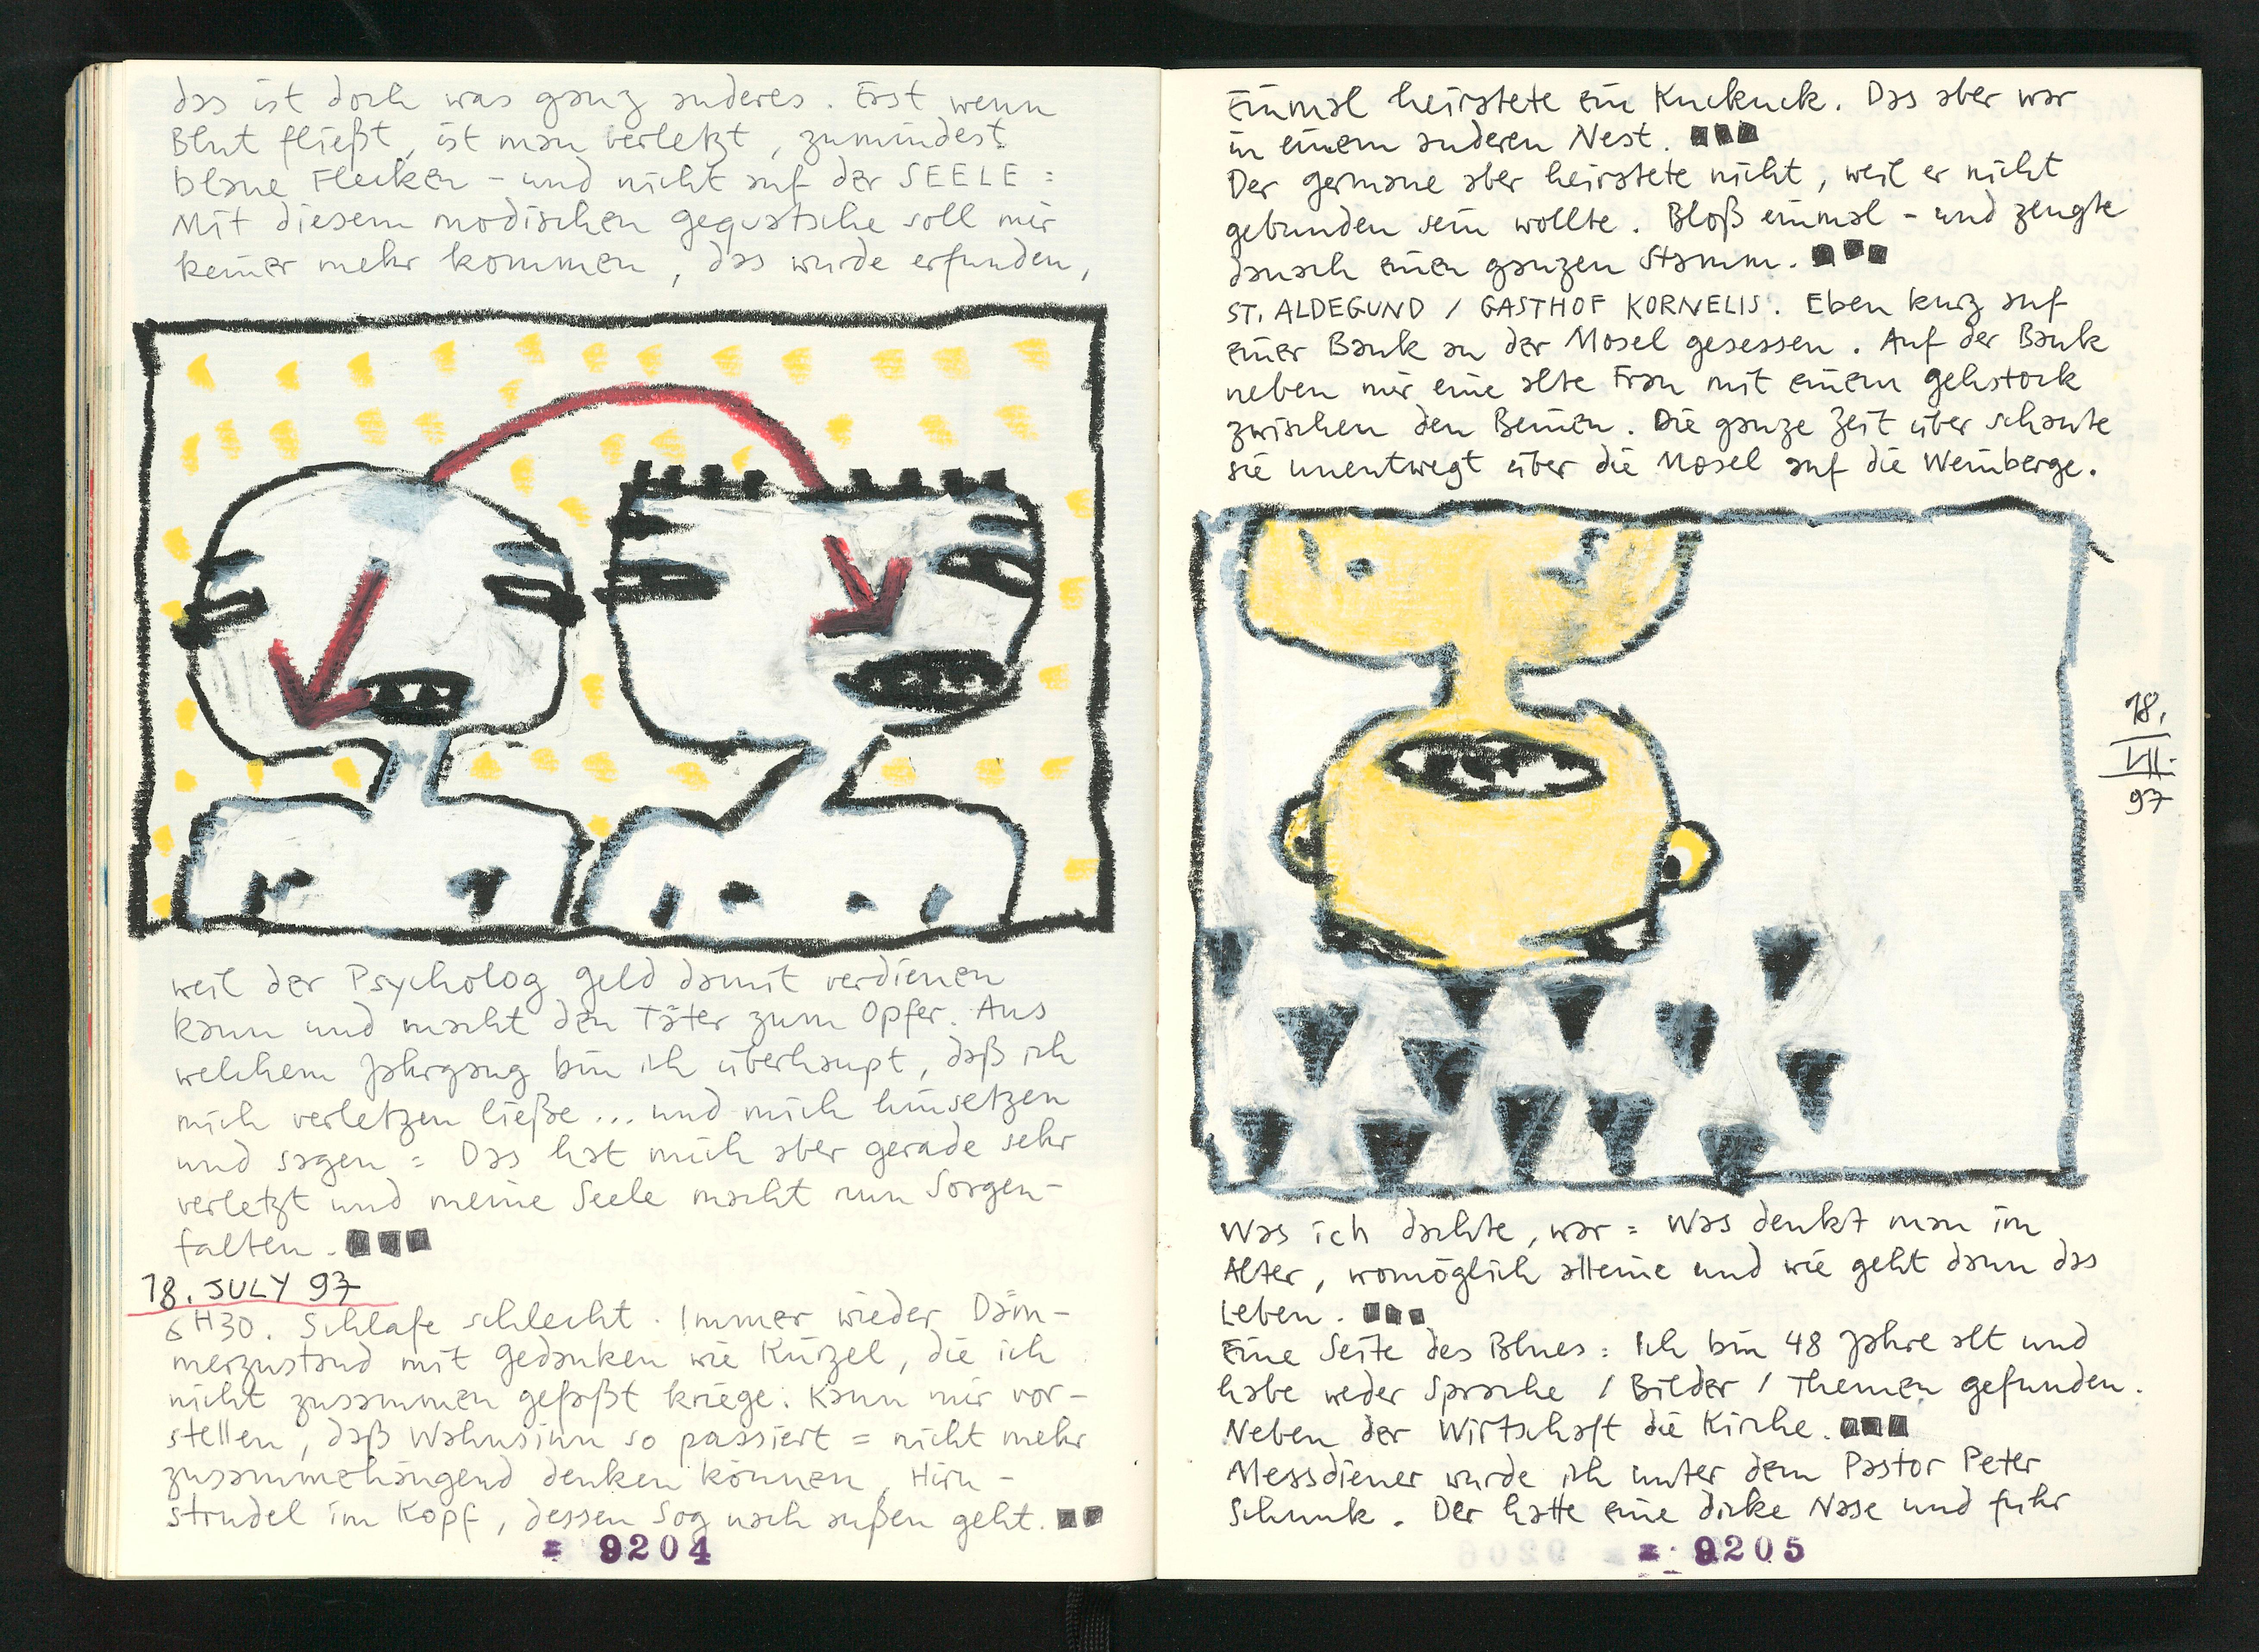 das ist doch was ganz anderes. Erst wenn
Blut fließt, ist man verletzt, zumindest
blaue Flecken – und nicht auf der SEELE :
Mit diesem modischen gequatsche soll mir
keiner mehr kommen, das wurde erfunden,
weil der Psycholog Geld damit verdienen
kann und macht den Täter zum Opfer. Aus
welchem Jahrgang bin ich überhaupt, daß ich
mich verletzen ließe... und mich hinsetzen
und sagen = Das hat mich aber gerade sehr
verletzt und meine Seele macht nun Sorgen-
falten. ■■■
18. JULY 97
6H30. Schlafe schlecht. Immer wieder Däm-
merzustand mit Gedanken wie Kürzel, die ich
nicht zusammen gefaßt kriege. Kann mir vor-
stellen, daß Wahnsinn so passiert = nicht mehr
zusammehängend denken können. Hirn-
strudel im Kopf, dessen Sog nach außen geht. ■■
= 9204
Einmal heiratete ein Kuckuck. Das aber war
in einem anderen Nest. ■■■
Der Germane aber heiratete nicht, weil er nicht
gebunden sein wollte. Bloß einmal – und zeugte
danach einen ganzen Stamm. ■■■
ST. ALDEGUND / GASTHOF KORNELIS. Eben kurz auf
einer Bank an der Mosel gesessen. Auf der Bank
neben mir eine alte Frau mit einem Gehstock
zwischen den Beinen. Die ganze Zeit über schaute
sie unentwegt über die Mosel auf die Weinberge.
18.
VII.
97
Was ich dachte, war = Was denkt man im
Alter, womöglich alleine und wie geht dann das
Leben. ■■■
Eine Seite des Blues : Ich bin 48 Jahre alt und
habe weder Sprache / Bilder / Themen gefunden.
Neben der Wirtschaft die Kirche. ■■■
Messdiener wurde ich unter dem Pastor Peter
Schunk. Der hatte eine dicke Nase und fuhr
= 9205